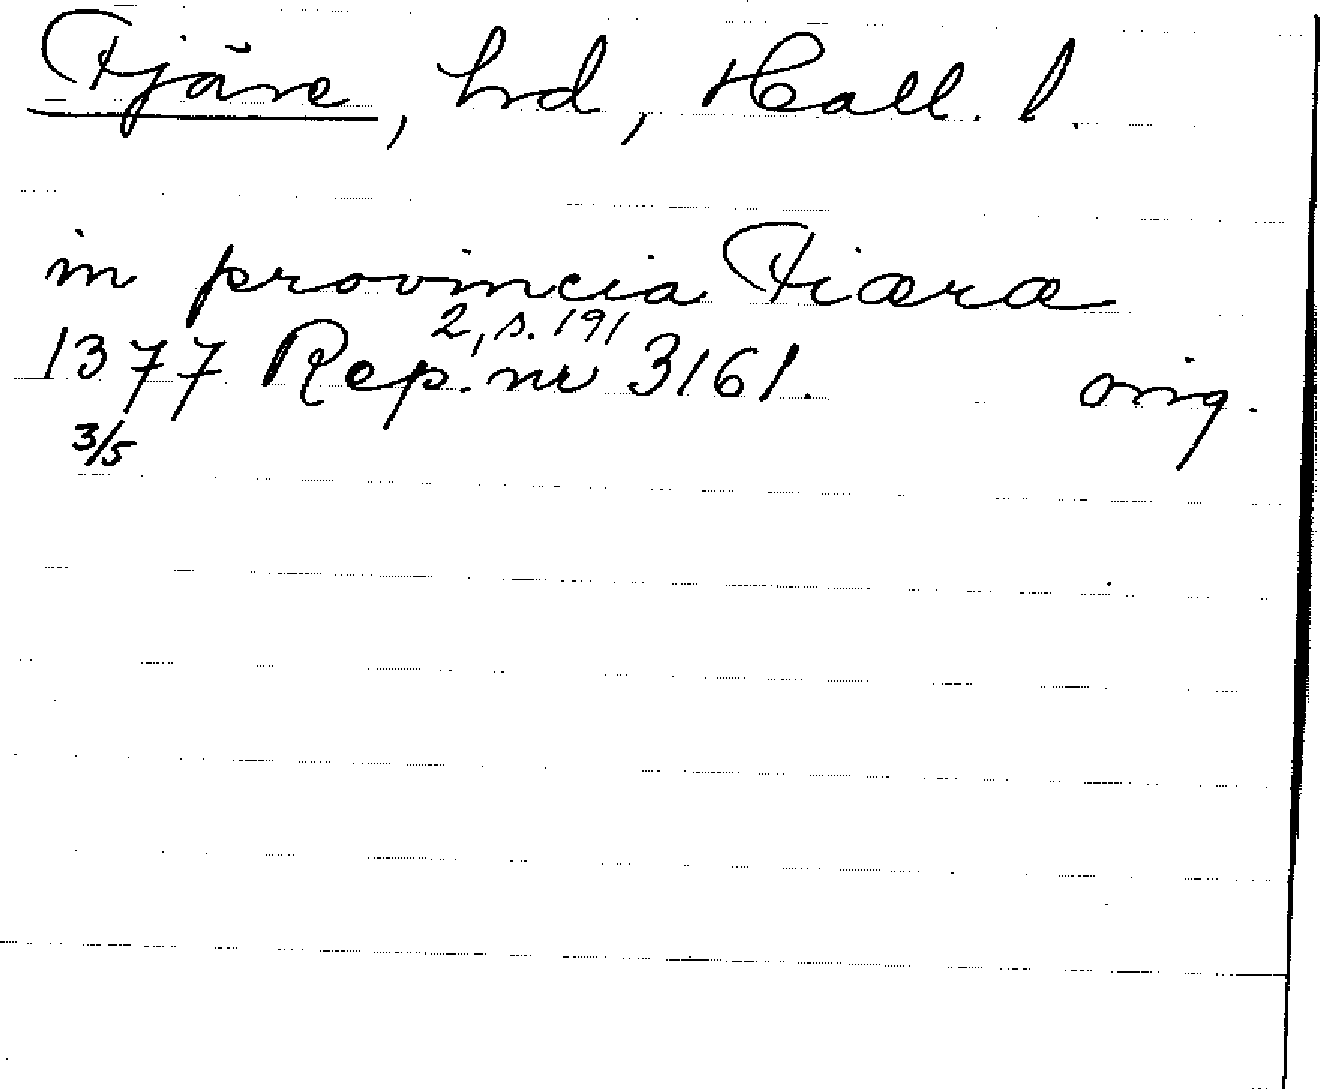 Fjäre, hd, Hall. l.
in provincia Fiæræ
2, s. 191
1377 Rep. nr 3161. orig.
3/5